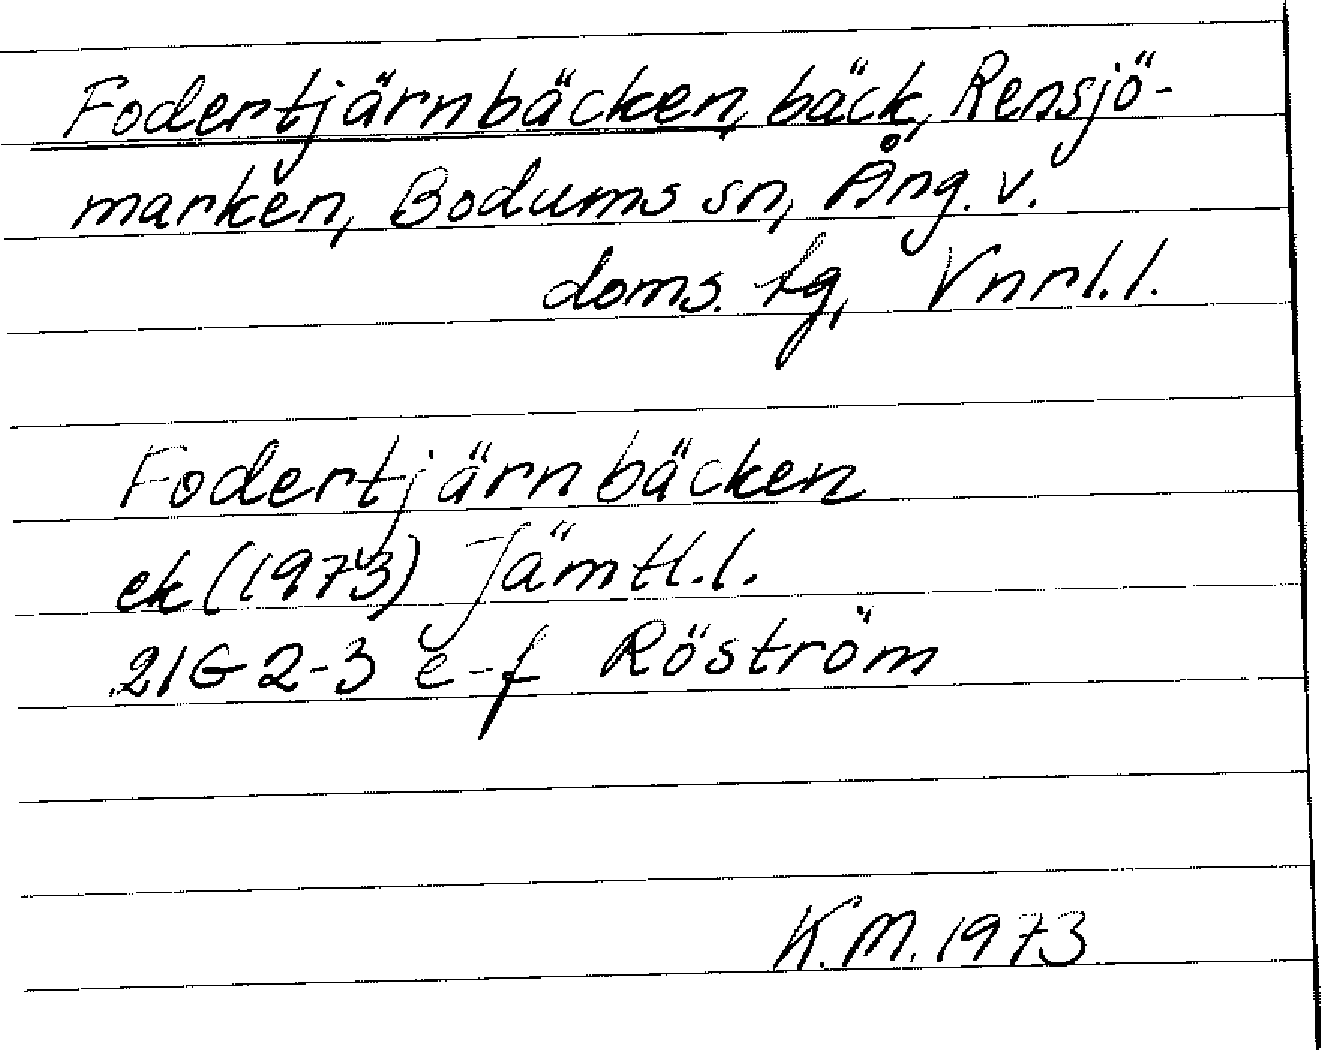 Fodertjärnbäcken, bäck, Rensjö-
marken, Bodums sn, Ång. v.
doms. lg, Vnrl. l.
Fodertjärnbäcken
ek (1973) Jämtl. l.
21G 2-3 e-f Röström
K.M. 1973